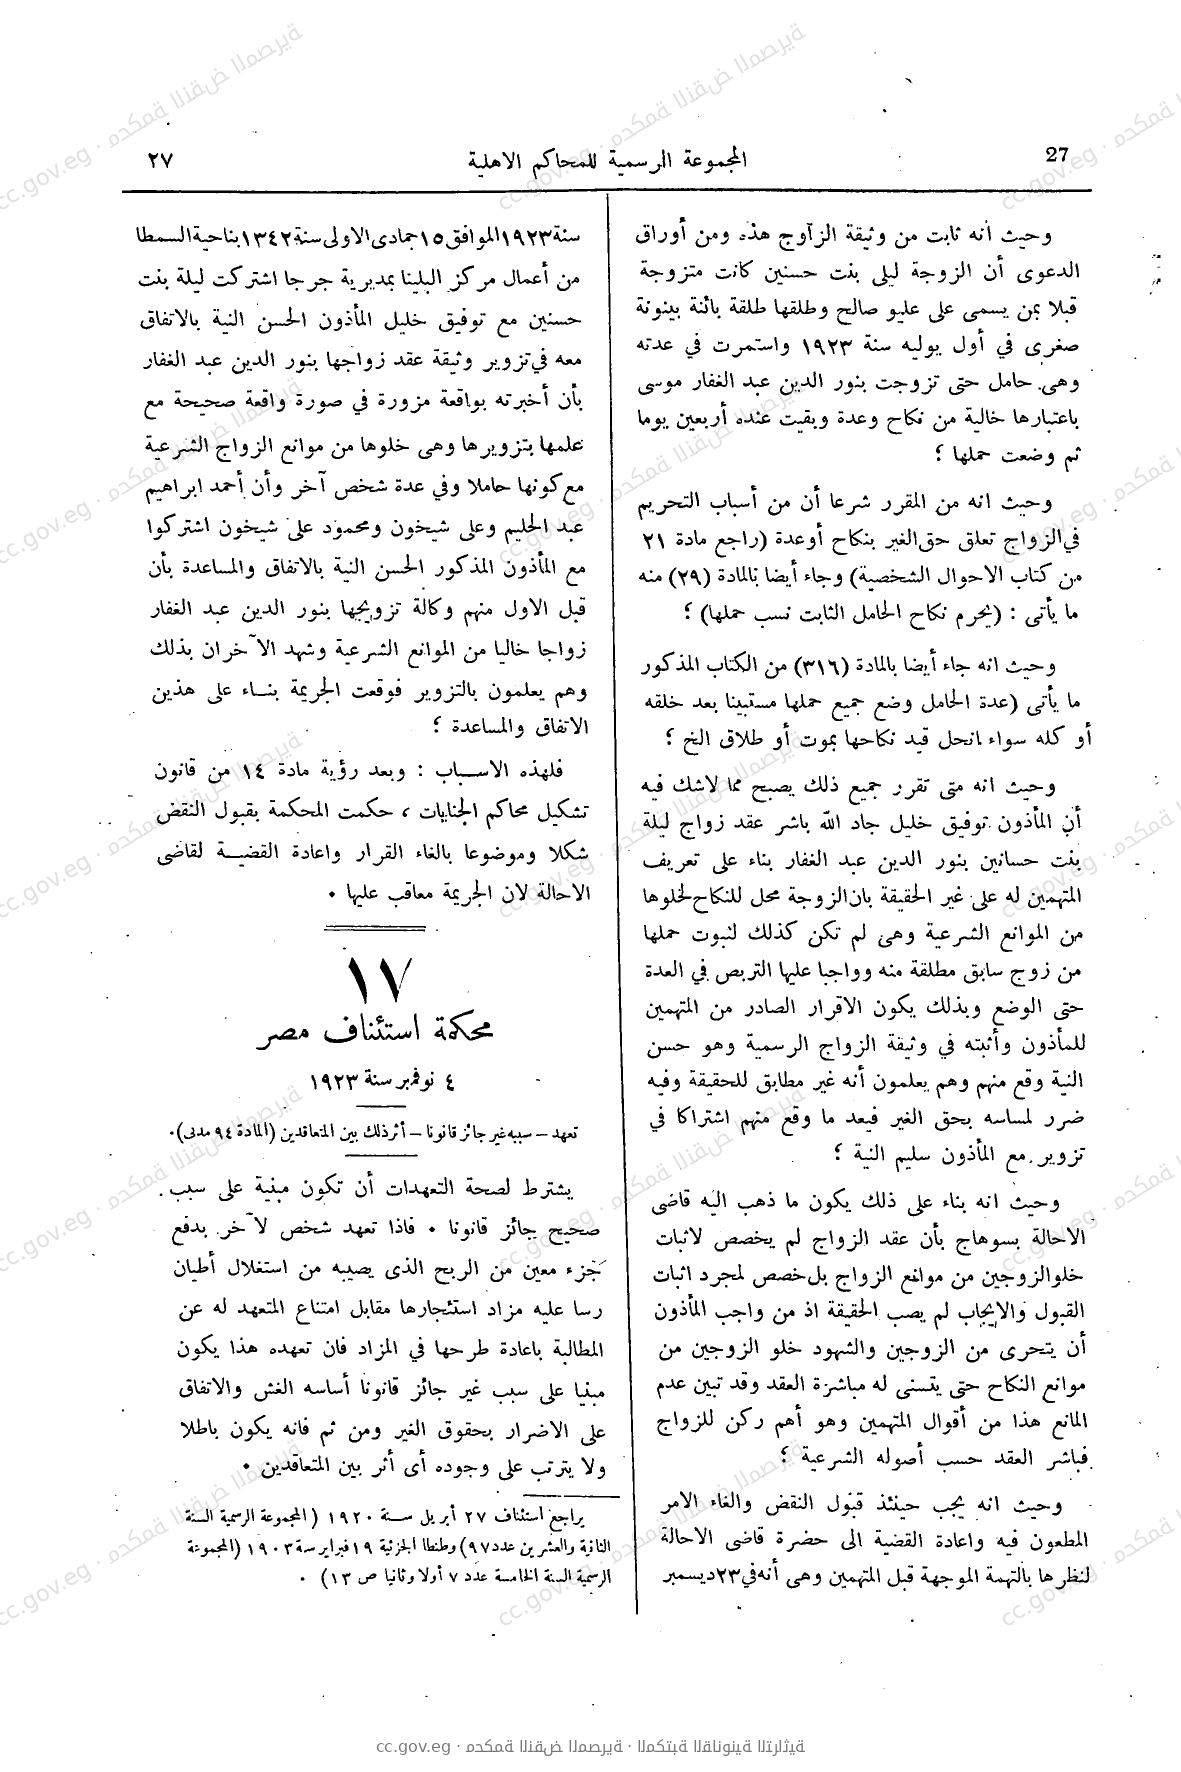 27
المجموعة الرسمية للمحاكم الاهلية
٢٧
وحيث أنه ثابت من وثيقة الزاوج هذه ومن أوراق
الدعوى أن الزوجة ليلى بنت حسنين كانت متزوجة
قبلا بمن يسمى على عليو صالح وطلقها طلقة بائنة بينونة
صغرى في أول يوليه سنة ١٩٢٣ واستمرت في عدته
وهى حامل حتى تزوجت بنور الدين عبد الغفار موسى
باعتبارها خالية من نكاح وعدة وبقيت عنده أربعين يوما
ثم وضعت حملها ؟
وحيث انه من المقرر شرعا أن من أسباب التحريم
في الزواج تعلق حق الغير بنكاح أوعدة (راجع مادة ٢١
من كتاب الاحوال الشخصية) وجاء أيضا بالمادة (٢٩) منه
ما يأتى : (يحرم نكاح الحامل الثابت نسب حملها) ؟
وحيث انه جاء أيضا بالمادة (٣١٦) من الكتاب المذكور
ما يأتى (عدة الحامل وضع جميع حملها مستبينا بعد خلقه
أو كله سواء انحل قيد نكاحها بموت أو طلاق الخ ؟
وحيث انه متى تقرر جميع ذلك يصبح مما لاشك فيه
أن المأذون توفيق خليل جاد الله باشر عقد زواج ليلة
بنت حسانين بنور الدين عبد الغفار بناء على تعريف
المتهمين له على غير الحقيقة بان الزوجة محل للنكاح لخلوها
من الموانع الشرعية وهى لم تكن كذلك لثبوت حملها
من زوج سابق مطلقة منه وواجبا عليها التربص في العدة
حتى الوضع وبذلك يكون الاقرار الصادر من المتهمين
للمأذون وأثبته في وثيقة الزواج الرسمية وهو حسن
النية وقع منهم وهم يعلمون أنه غير مطابق للحقيقة وفيه
ضرر لمساسه بحق الغير فيعد ما وقع منهم اشتراكا في
تزوير مع المأذون سليم النية ؟
وحيث انه بناء على ذلك يكون ما ذهب اليه قاضى
الاحالة بسوهاج بأن عقد الزواج لم يخصص لاثبات
خلو الزوجين من موانع الزواج بل خصص لمجرد اثبات
القبول والايجاب لم يصب الحقيقة اذ من واجب المأذون
أن يتحرى من الزوجين والشهود خلو الزوجين من
موانع النكاح حتى يتسنى له مباشرة العقد وقد تبين عدم
المانع هذا من أقوال المتهمين وهو أهم ركن للزواج
فباشر العقد حسب أصوله الشرعية ؟
وحيث انه يجب حينئذ قبول النقض والغاء الامر
المطعون فيه واعادة القضية الى حضرة قاضى الاحالة
لنظرها بالتهمة الموجهة قبل المتهمين وهى أنه في ٢٣ ديسمبر
سنة ١٩٢٣ الموافق ١٥ جمادى الاولى سنة ١٣٤٢ بناحية السمطا
من أعمال مركز البلينا بمديرية جرجا اشتركت ليلة بنت
حسنين مع توفيق خليل المأذون الحسن النية بالاتفاق
معه في تزوير وثيقة عقد زواجها بنور الدين عبد الغفار
بأن أخبرته بواقعة مزورة في صورة واقعة صحيحة مع
علمها بتزويرها وهى خلوها من موانع الزواج الشرعية
مع كونها حاملا وفي عدة شخص آخر وأن أحمد ابراهيم
عبد الحليم وعلى شيخون ومحمود على شيخون اشتركوا
مع المأذون المذكور الحسن النية بالاتفاق والمساعدة بأن
قبل الاول منهم وكالة تزويجها بنور الدين عبد الغفار
زواجا خاليا من الموانع الشرعية وشهد الآخران بذلك
وهم يعلمون بالتزوير فوقعت الجريمة بناء على هذين
الاتفاق والمساعدة ؟
فلهذه الاسباب : وبعد رؤية مادة ١٤ من قانون
تشكيل محاكم الجنايات ، حكمت المحكمة بقبول النقض
شكلا وموضوعا بالغاء القرار واعادة القضية لقاضى
الاحالة لان الجريمة معاقب عليها ٠
١٧
محكمة استئناف مصر
٤ نوفمبر سنة ١٩٢٣
تعهد – سببه غير جائز قانونا – أثر ذلك بين المتعاقدين (المادة ٩٤ مدنى)٠
يشترط لصحة التعهدات أن تكون مبنية على سبب
صحيح جائز قانونا ٠ فاذا تعهد شخص لآخر بدفع
جزء معين من الربح الذى يصيبه من استغلال أطيان
رسا عليه مزاد استئجارها مقابل امتناع المتعهد له عن
المطالبة باعادة طرحها في المزاد فان تعهده هذا يكون
مبنيا على سبب غير جائز قانونا أساسه الغش والاتفاق
على الاضرار بحقوق الغير ومن ثم فانه يكون باطلا
ولا يترتب على وجوده أى أثر بين المتعاقدين ٠
يراجع استئناف ٢٧ أبريل سنة ١٩٢٠ (المجموعة الرسمية السنة
الثانية والعشرين عدد ٩٧) وطنطا الجزئية ١٩ فبراير سنة ١٩٠٣ (المجموعة
الرسمية السنة الخامسة عدد ٧ أولا وثانيا ص ١٣) ٠
cc.gov.eg · محكمة النقض المصرية · المكتبة القانونية التراثية